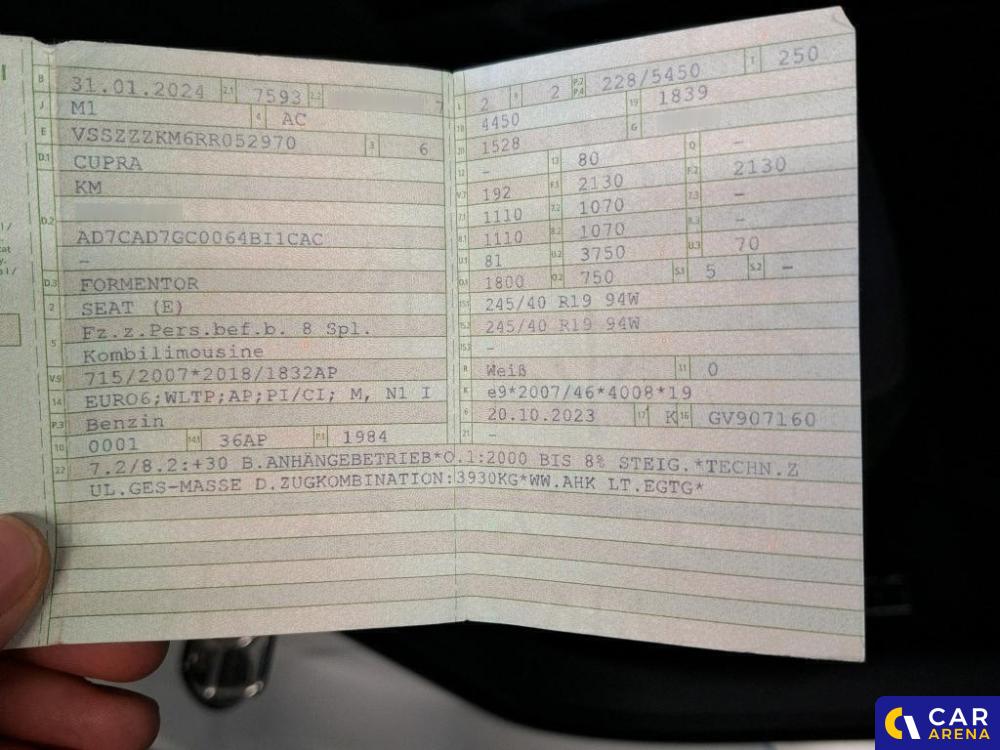 B 31.01.2024 2.1 7593 2.2 7
J M1 4 AC
E VSSZZZKM6RR052970 3 6
D.1 CUPRA
KM
D.2
AD7CAD7GC0064BI1CAC
–
D.3 FORMENTOR
2 SEAT (E)
5 Fz.z.Pers.bef.b. 8 Spl.
Kombilimousine
V.9 715/2007*2018/1832AP
14 EURO6;WLTP;AP;PI/CI; M, N1 I
P.3 Benzin
10 0001 14.1 36AP P.1 1984
22 7.2/8.2:+30 B.ANHÄNGEBETRIEB*O.1:2000 BIS 8% STEIG.*TECHN.Z
UL.GES-MASSE D.ZUGKOMBINATION:3930KG*WW.AHK LT.EGTG*
L 2 9 2 P.2 P.4 228/5450 T 250
18 4450 19 1839
20 1528 G
12 – 13 80 Q –
V.7 192 F.1 2130 F.2 2130
7.1 1110 7.2 1070 7.3 –
8.1 1110 8.2 1070 8.3 –
U.1 81 U.2 3750 U.3 70
O.1 1800 O.2 750 S.1 5 S.2 –
15.1 245/40 R19 94W
15.2 245/40 R19 94W
15.3 –
R Weiß 11 0
K e9*2007/46*4008*19
6 20.10.2023 17 K 16 GV907160
21 –
CAR
ARENA